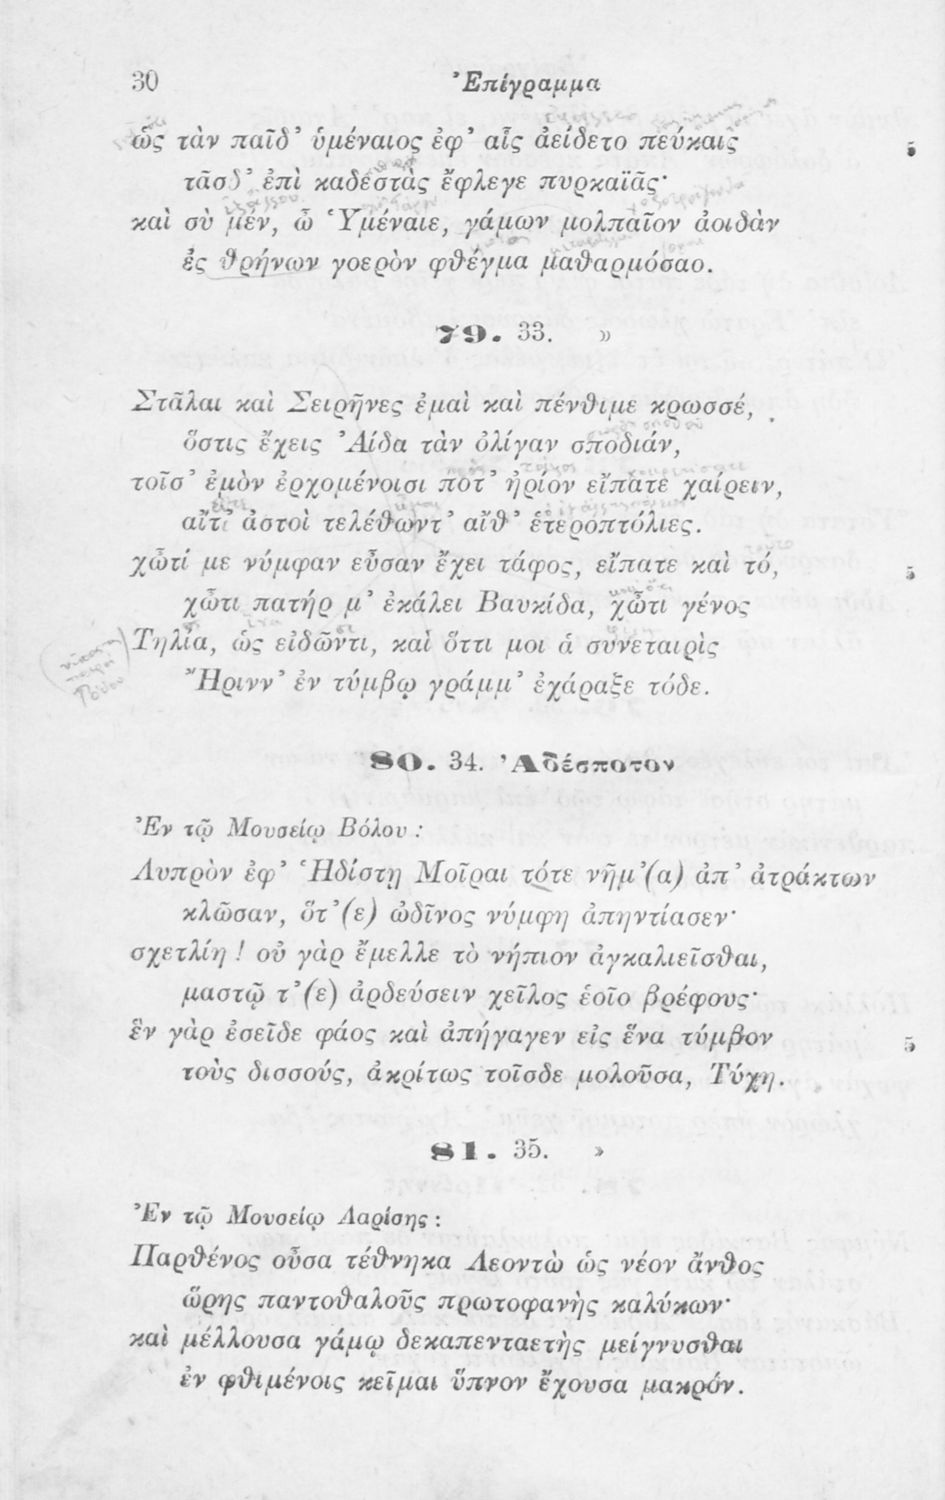 30 Ἐπίγραμμα
ὡς τὰν παῖδ' ὑμέναιος ἐφ' αἷς ἀείδετο πεύκαις 5
τᾶσδ' ἐπὶ καδεστὰς ἔφλεγε πυρκαϊᾶς·
καὶ σὺ μέν, ὦ Ὑμέναιε, γάμων μολπαῖον ἀοιδὰν
ἐς θρήνων γοερὸν φθέγμα μαθαρμόσαο.
79. 33. »
Στᾶλαι καὶ Σειρῆνες ἐμαὶ καὶ πένθιμε κρωσσέ,
ὅστις ἔχεις Ἀίδα τὰν ὀλίγαν σποδιάν,
τοῖσ' ἐμὸν ἐρχομένοισι ποτ' ἠρίον εἴπατε χαίρειν,
αἴτ' ἀστοὶ τελέθωντ' αἴθ' ἑτεροπτόλιες.
χὦτί με νύμφαν εὖσαν ἔχει τάφος, εἴπατε καὶ τό, 5
χὦτι πατήρ μ' ἐκάλει Βαυκίδα, χὦτι γένος
Τηλία, ὡς εἰδῶντι, καὶ ὅττι μοι ἁ συνεταιρὶς
Ἤρινν' ἐν τύμβῳ γράμμ' ἐχάραξε τόδε.
80. 34. Ἀδέσποτον
Ἐν τῷ Μουσείῳ Βόλου :
Λυπρὸν ἐφ' Ἡδίστῃ Μοῖραι τότε νῆμ'(α) ἀπ' ἀτράκτων
κλῶσαν, ὅτ'(ε) ὠδῖνος νύμφη ἀπηντίασεν·
σχετλίη ! οὐ γὰρ ἔμελλε τὸ νήπιον ἀγκαλιεῖσθαι,
μαστῷ τ'(ε) ἀρδεύσειν χεῖλος ἑοῖο βρέφους·
ἓν γὰρ ἐσεῖδε φάος καὶ ἀπήγαγεν εἰς ἕνα τύμβον 5
τοὺς δισσούς, ἀκρίτως τοῖσδε μολοῦσα, Τύχη.
81. 35. »
Ἐν τῷ Μουσείῳ Λαρίσης :
Παρθένος οὖσα τέθνηκα Λεοντὼ ὡς νέον ἄνθος
ὥρης παντοθαλοῦς πρωτοφανὴς καλύκων·
καὶ μέλλουσα γάμῳ δεκαπενταετὴς μείγνυσθαι
ἐν φθιμένοις κεῖμαι ὕπνον ἔχουσα μακρόν.